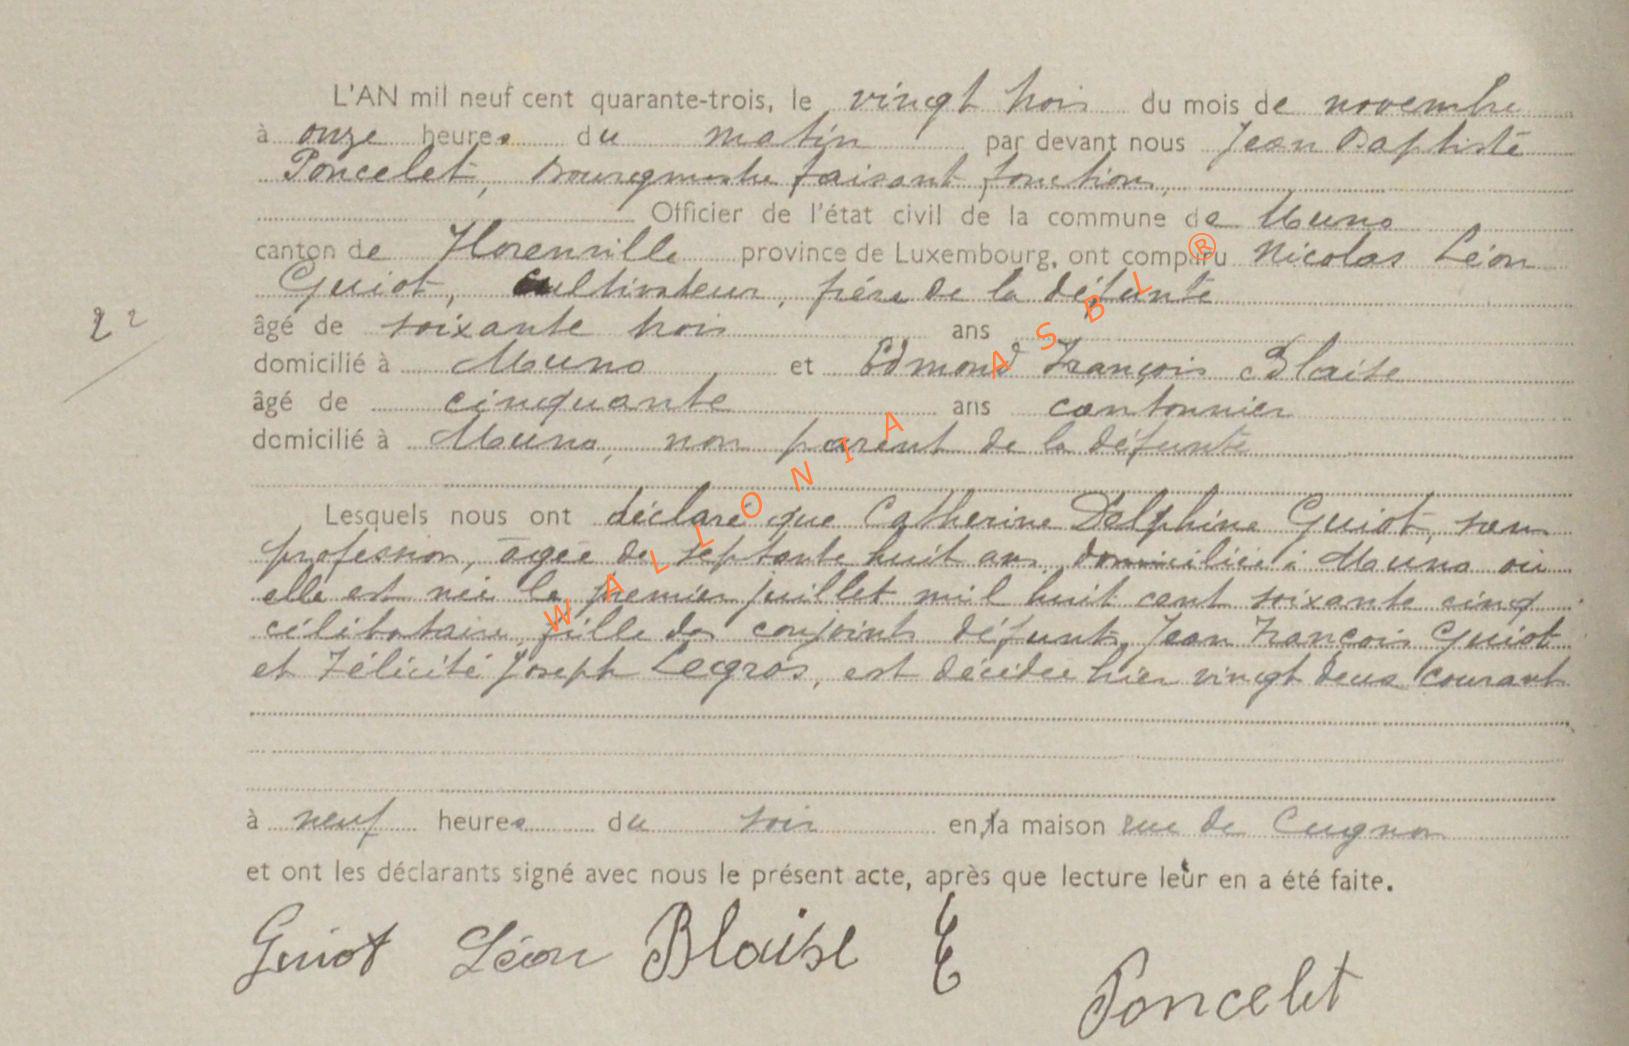 L'AN mil neuf cent quarante-trois, le vingt trois du mois de novembre
à onze heures du matin par devant nous Jean Baptiste
Poncelet, Bourgmestre faisant fonctions,
Officier de l'état civil de la commune de Muno
canton de Florenville province de Luxembourg, ont comparu Nicolas Léon
Guiot, cultivateur, frère de la défunte
âgé de soixante trois ans
domicilié à Muno et Edmond François Blaise
âgé de cinquante ans cantonnier
domicilié à Muno, non parent de la défunte
22
Lesquels nous ont déclaré que Catherine Delphine Guiot, sans
profession, âgée de septante huit ans, domiciliée à Muno où
elle est née le premier juillet mil huit cent soixante cinq
célibataire, fille des conjoints défunts, Jean François Guiot
et Félicité Joseph Legros, est décédée hier vingt deux courant
à neuf heures du soir en la maison rue de Cugnon
et ont les déclarants signé avec nous le présent acte, après que lecture leur en a été faite.
Guiot Léon Blaise E
Poncelet
WALLONIA ASBL ®